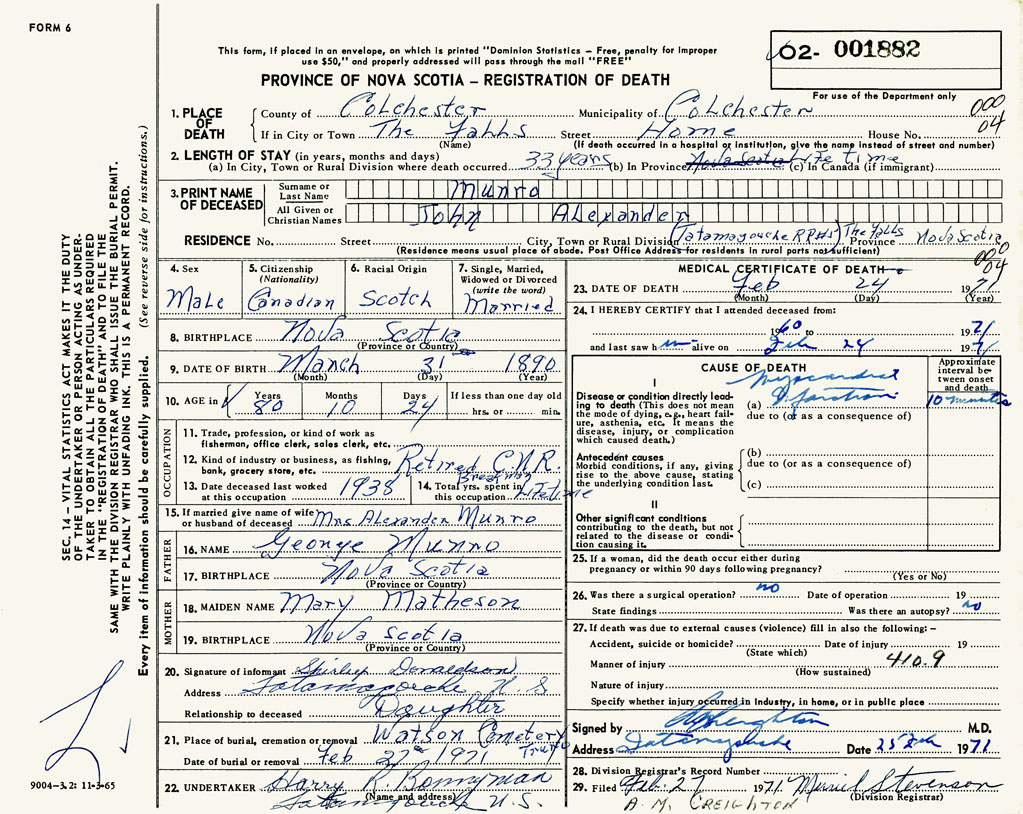 FORM 6
This form, if placed in an envelope, on which is printed "Dominion Statistics – Free, penalty for improper
use $50," and properly addressed will pass through the mail "FREE"
02- 001882
For use of the Department only
PROVINCE OF NOVA SCOTIA – REGISTRATION OF DEATH
000
04
1. PLACE OF DEATH
County of Colchester Municipality of Colchester
If in City or Town The Falls Street Home House No.
(Name) (If death occurred in a hospital or institution, give the name instead of street and number)
2. LENGTH OF STAY (in years, months and days)
(a) In City, Town or Rural Division where death occurred 33 years (b) In Province Nova Scotia Life time (c) In Canada (if immigrant)
3. PRINT NAME OF DECEASED
Surname or Last Name Munro
All Given or Christian Names John Alexander
RESIDENCE No. Street City, Town or Rural Division Tatamagouche RR#5 The Falls Province Nova Scotia
(Residence means usual place of abode. Post Office Address for residents in rural parts not sufficient)
000
04
4. Sex Male
5. Citizenship (Nationality) Canadian
6. Racial Origin Scotch
7. Single, Married, Widowed or Divorced (write the word) Married
8. BIRTHPLACE Nova Scotia
(Province or Country)
9. DATE OF BIRTH March 31 1890
(Month) (Day) (Year)
10. AGE in Years 80 Months 10 Days 24 If less than one day old
hrs. or min.
OCCUPATION
11. Trade, profession, or kind of work as
fisherman, office clerk, sales clerk, etc.
12. Kind of industry or business, as fishing,
bank, grocery store, etc. Retired C.N.R.
Breakman
13. Date deceased last worked
at this occupation 1938
14. Total yrs. spent in
this occupation Lifetime
15. If married give name of wife
or husband of deceased Mrs Alexander Munro
FATHER
16. NAME George Munro
17. BIRTHPLACE Nova Scotia
(Province or Country)
MOTHER
18. MAIDEN NAME Mary Matheson
19. BIRTHPLACE Nova Scotia
(Province or Country)
20. Signature of informant Shirley Donaldson
Address Tatamagouche N.S
Relationship to deceased Daughter
21. Place of burial, cremation or removal Watson Cemetery
Truro
Date of burial or removal Feb 27th 1971
22. UNDERTAKER Harry R. Bonnyman
(Name and address)
Tatamagouche N.S.
MEDICAL CERTIFICATE OF DEATH
23. DATE OF DEATH Feb 24 1971
(Month) (Day) (Year)
24. I HEREBY CERTIFY that I attended deceased from:
1960 to 1971
and last saw him alive on Feb 24 1971
CAUSE OF DEATH
Approximate interval between onset and death
I
Disease or condition directly leading to death (This does not mean the mode of dying, e.g., heart failure, asthenia, etc. It means the disease, injury, or complication which caused death.)
(a) Myocardial Infarction 10 minutes
due to (or as a consequence of)
Antecedent causes
Morbid conditions, if any, giving rise to the above cause, stating the underlying condition last.
(b)
due to (or as a consequence of)
(c)
II
Other significant conditions
contributing to the death, but not related to the disease or condition causing it.
25. If a woman, did the death occur either during
pregnancy or within 90 days following pregnancy?
(Yes or No)
26. Was there a surgical operation? no Date of operation 19
State findings Was there an autopsy? no
27. If death was due to external causes (violence) fill in also the following: –
Accident, suicide or homicide? Date of injury 19
(State which)
Manner of injury 410.9
(How sustained)
Nature of injury
Specify whether injury occurred in industry, in home, or in public place
Signed by M.D.
Address Tatamagouche Date 25 Feb 1971
28. Division Registrar's Record Number
29. Filed Feb. 27 1971 Muriel Stevenson
(Division Registrar)
A. M. CREIGHTON
SEC. 14 – VITAL STATISTICS ACT MAKES IT THE DUTY
OF THE UNDERTAKER OR PERSON ACTING AS UNDER-
TAKER TO OBTAIN ALL THE PARTICULARS REQUIRED
IN THE "REGISTRATION OF DEATH" AND TO FILE THE
SAME WITH THE DIVISION REGISTRAR WHO SHALL ISSUE THE BURIAL PERMIT.
WRITE PLAINLY WITH UNFADING INK. THIS IS A PERMANENT RECORD.
Every item of information should be carefully supplied. (See reverse side for instructions.)
9004–3.2: 11-3-65